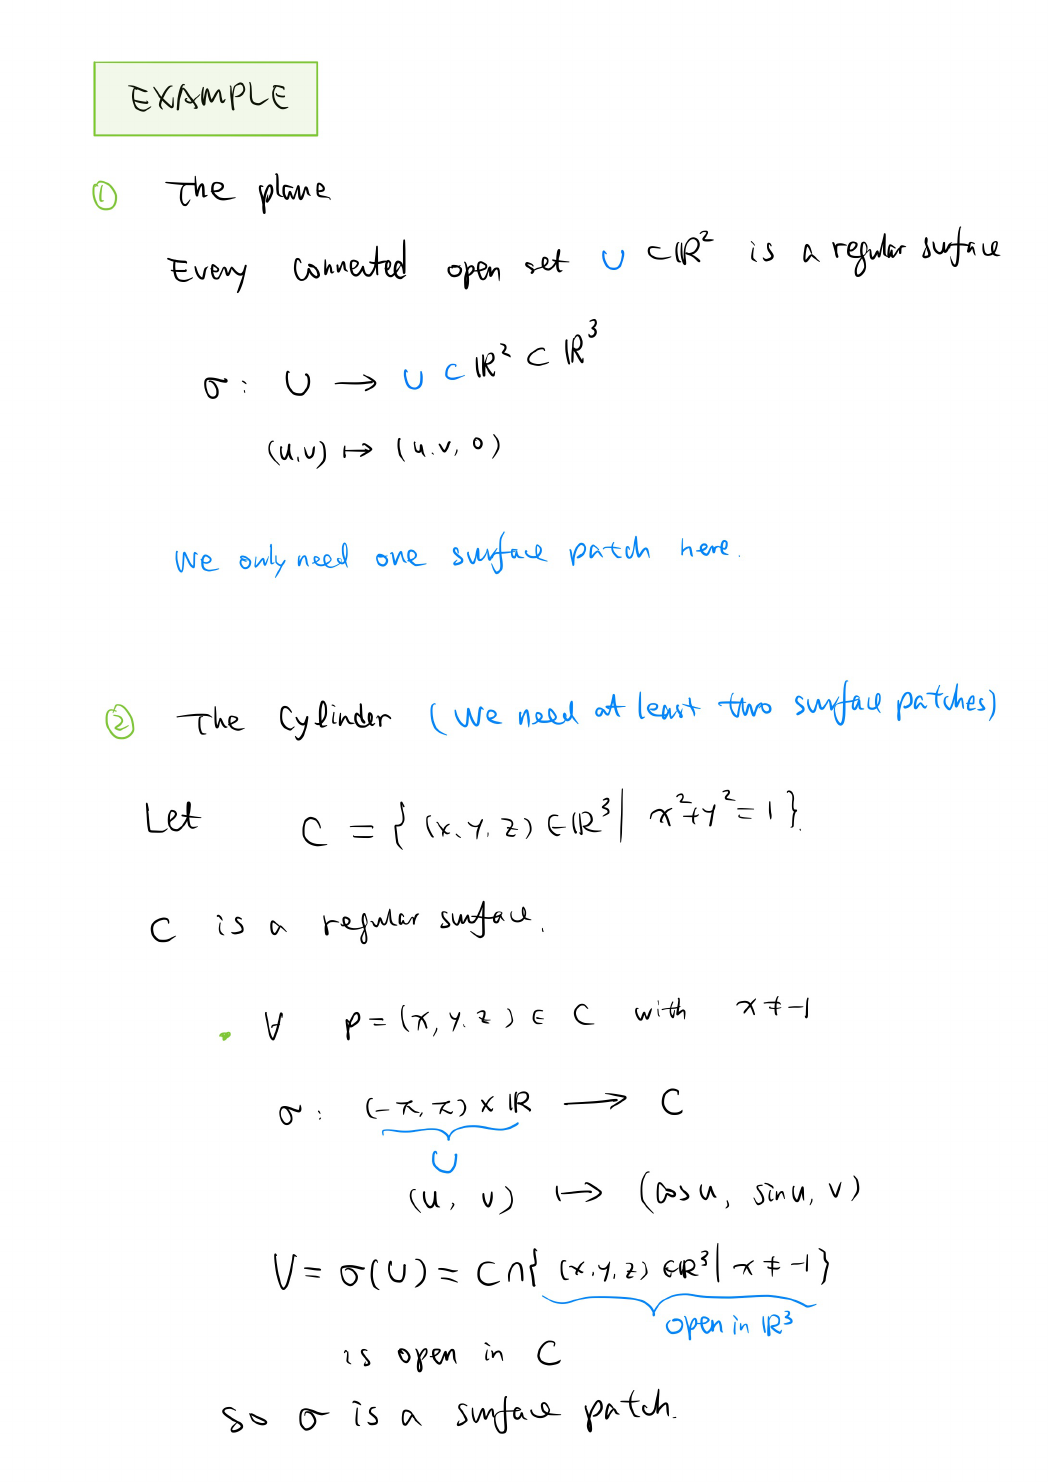 EXAMPLE
① The plane
Every connected open set U ⊂ ℝ² is a regular surface
σ: U → U ⊂ ℝ² ⊂ ℝ³
(u,v) ↦ (u.v, 0)
We only need one surface patch here.
② The Cylinder (We need at least two surface patches)
Let C = { (x, y, z) ∈ ℝ³ | x²+y²=1 }.
C is a regular surface.
· ∀ p = (x, y. z) ∈ C with x ≠ -1
σ: (-π, π) × ℝ → C
U
(u, v) ↦ (cosu, sinu, v)
V = σ(U) = C∩{ (x.y, z) ∈ℝ³ | x ≠ -1 }
open in ℝ³
is open in C
So σ is a surface patch.